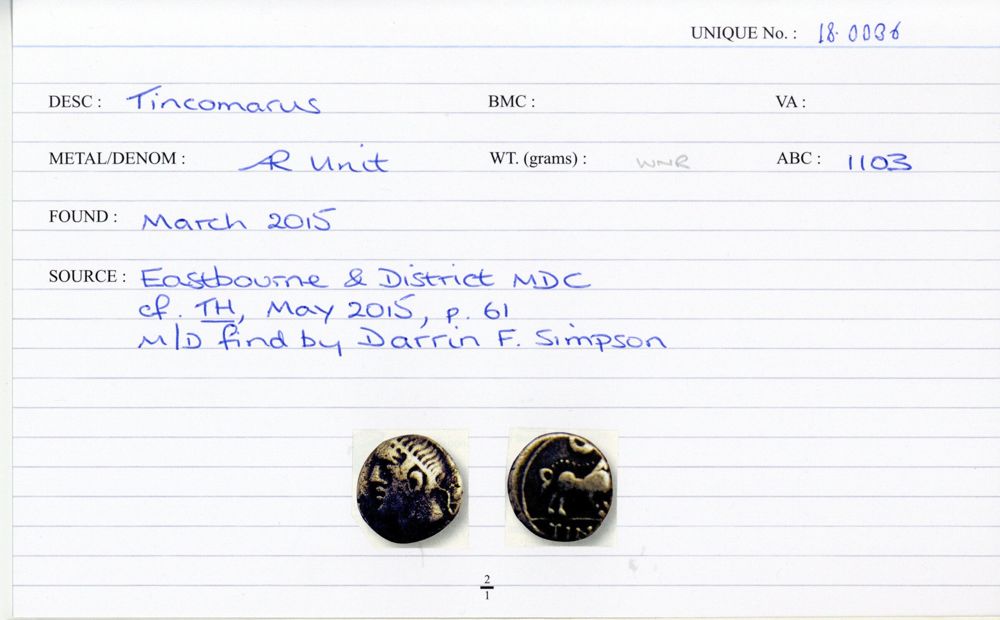 UNIQUE No. : 18.0036
DESC : Tincomarus BMC : VA :
METAL/DENOM : AR Unit WT. (grams) : WNR ABC : 1103
FOUND : March 2015
SOURCE : Eastbourne & District MDC
cf. TH, May 2015, p. 61
M/D find by Darrin F. Simpson
TIN
2
1